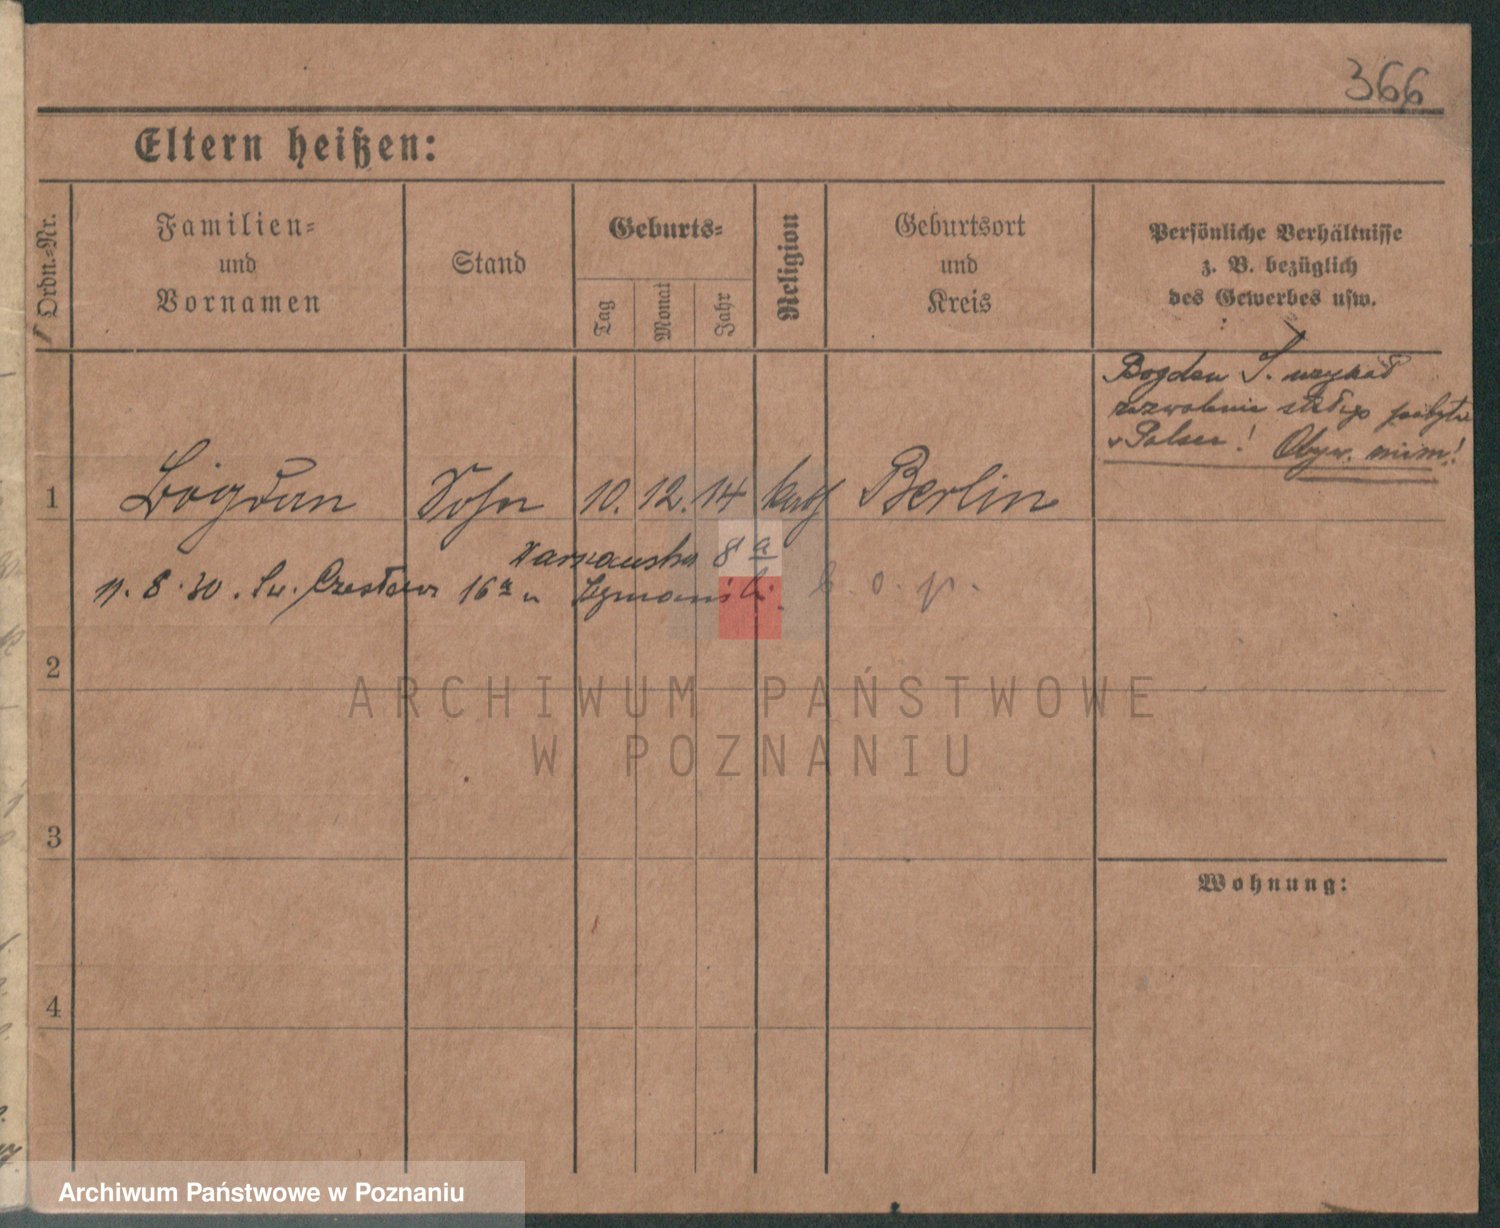 366
Eltern heißen:
Ordn.-Nr.
Familien-
und
Vornamen
Stand
Geburts-
Tag
Monat
Jahr
Religion
Geburtsort
und
Kreis
Persönliche Verhältnisse
z. B. bezüglich
des Gewerbes usw.
Bogdan S. uzyskał
zezwolenie stałego pobytu
w Polsce! Obyw. niem!
1 Bogdan Sohn 10. 12. 14 kath Berlin
Warszawska 8a
11. 8. 30. Św. Czesława 16a u
2
3
4
Wohnung:
ARCHIWUM PAŃSTWOWE
W POZNANIU
Archiwum Państwowe w Poznaniu